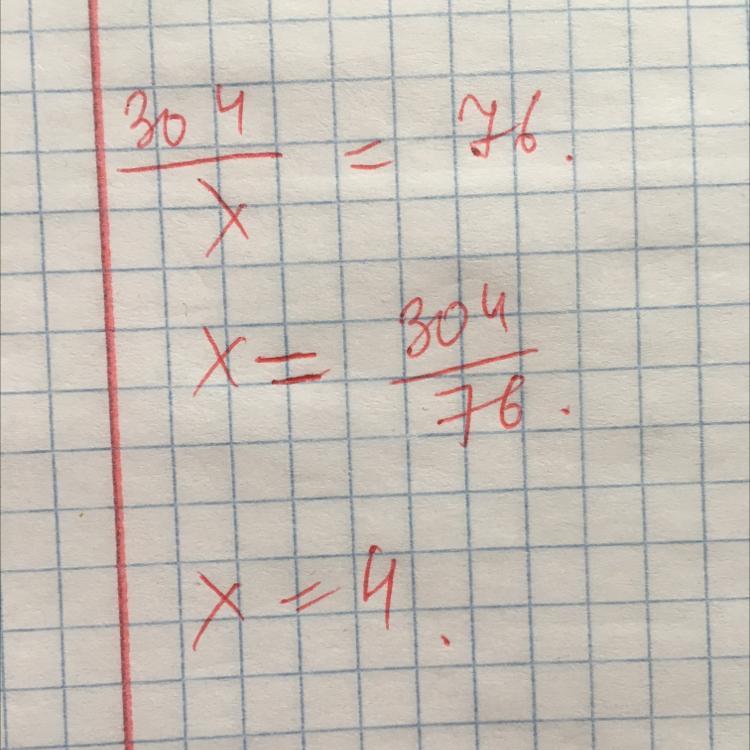 304/x = 76.
x = 304/76.
x = 4.